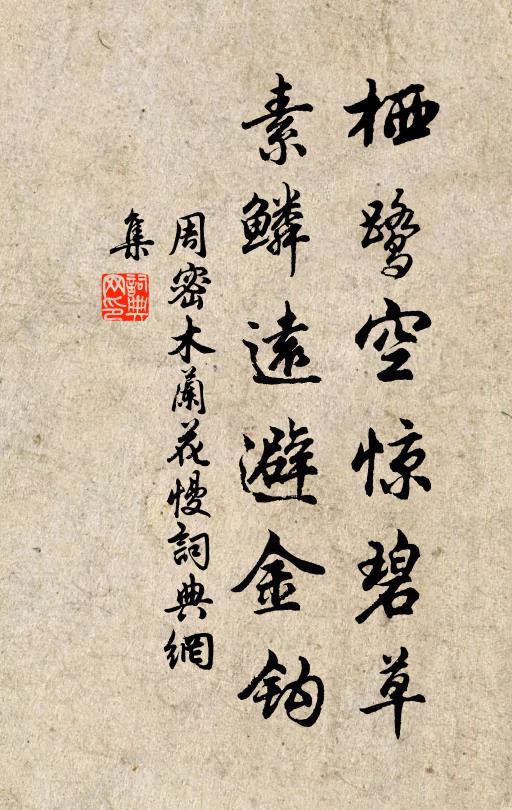 栖鹭空惊碧草
素鳞遠避金钩
周密木蘭花慢詞典網
集
詞典网印